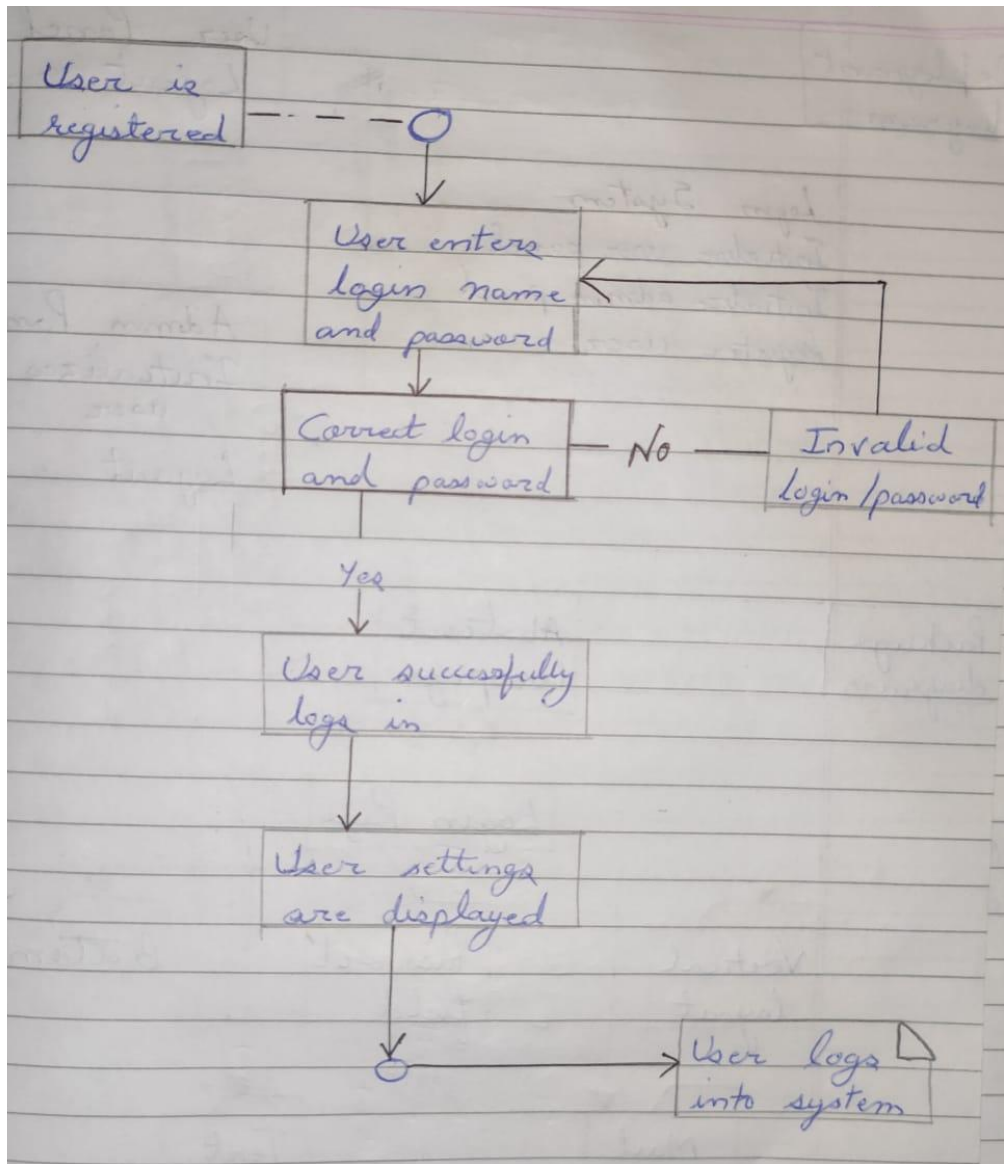 User is
registered
User enters
login name
and password
Correct login
and password
No
Invalid
login/password
Yes
User successfully
logs in
User settings
are displayed
User logs
into system